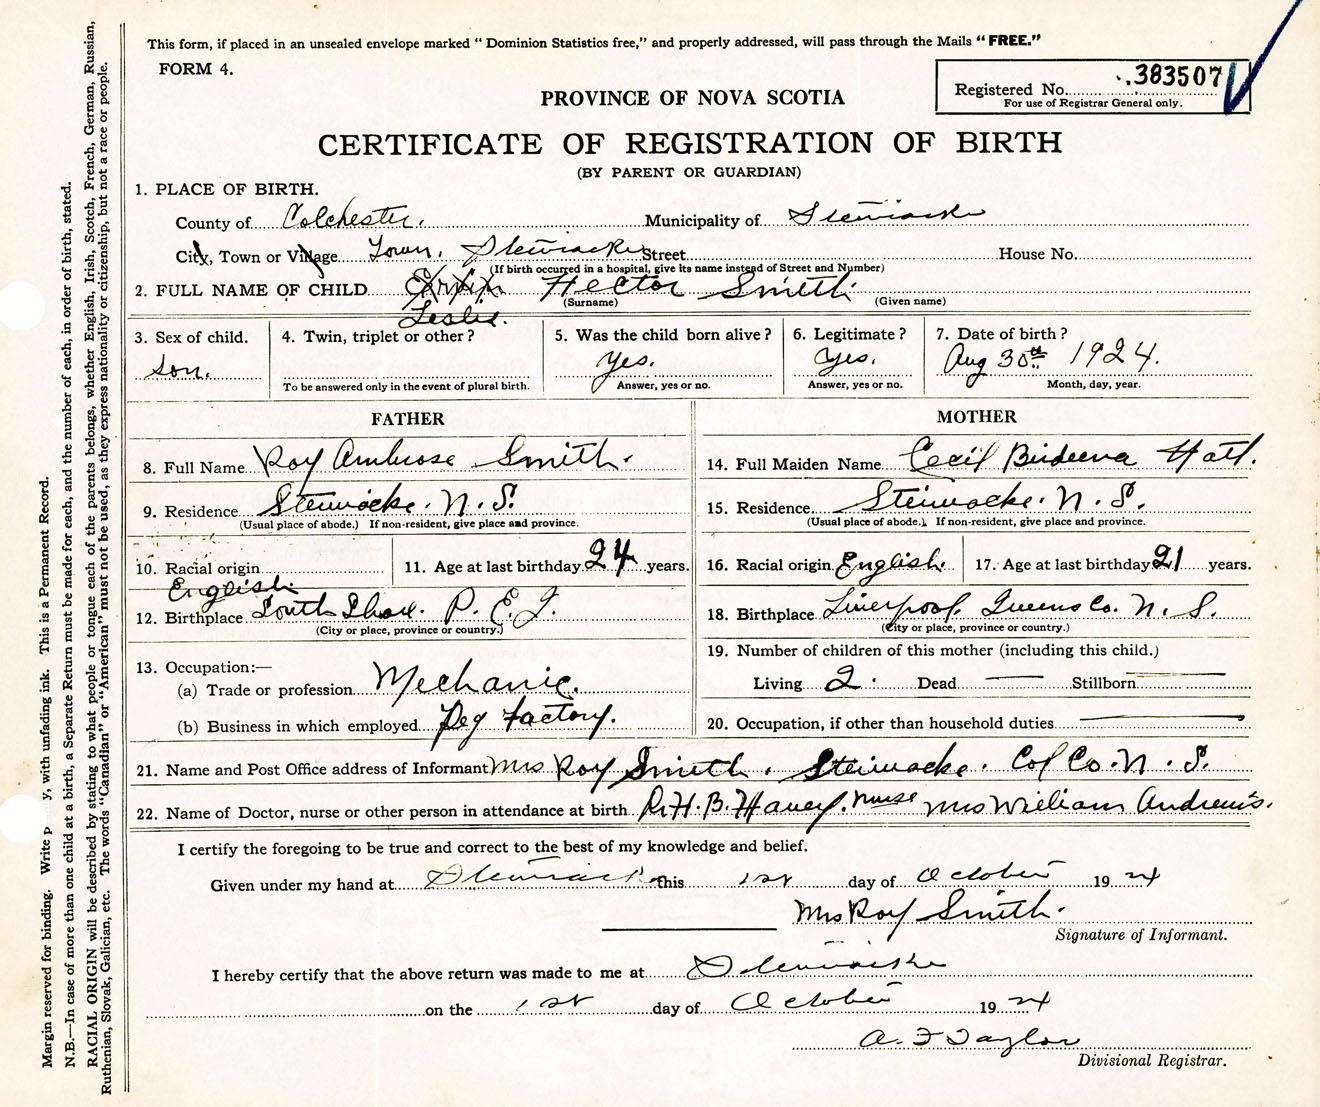 This form, if placed in an unsealed envelope marked " Dominion Statistics free," and properly addressed, will pass through the Mails "FREE."
FORM 4.
Registered No. 383507
For use of Registrar General only.
PROVINCE OF NOVA SCOTIA
CERTIFICATE OF REGISTRATION OF BIRTH
(BY PARENT OR GUARDIAN)
1. PLACE OF BIRTH.
County of Colchester. Municipality of Stewiacke
City, Town or Village Town. Stewiacke Street House No.
(If birth occurred in a hospital, give its name instead of Street and Number)
2. FULL NAME OF CHILD Hector Smith
(Surname) (Given name)
Leslie.
3. Sex of child. 4. Twin, triplet or other? 5. Was the child born alive? 6. Legitimate? 7. Date of birth?
son. yes. yes. Aug 30th 1924.
To be answered only in the event of plural birth. Answer, yes or no. Answer, yes or no. Month, day, year.
FATHER MOTHER
8. Full Name Roy Ambrose Smith. 14. Full Maiden Name Cecil Birdeena
9. Residence Stewiacke. N. S. 15. Residence Stewiacke. N. S.
(Usual place of abode.) If non-resident, give place and province. (Usual place of abode.) If non-resident, give place and province.
10. Racial origin English 11. Age at last birthday 24 years. 16. Racial origin English. 17. Age at last birthday 21 years.
12. Birthplace South Shore. P. E. I. 18. Birthplace Liverpool. Queens Co. N. S.
(City or place, province or country.) (City or place, province or country.)
13. Occupation:— 19. Number of children of this mother (including this child.)
(a) Trade or profession Mechanic. Living 2. Dead — Stillborn —
(b) Business in which employed Peg Factory. 20. Occupation, if other than household duties —
21. Name and Post Office address of Informant Mrs Roy Smith. Stewiacke. Col Co. N. S.
22. Name of Doctor, nurse or other person in attendance at birth H. B. Havey. Nurse Mrs William Andrews.
I certify the foregoing to be true and correct to the best of my knowledge and belief.
Given under my hand at Stewiacke this 1st day of October 1924
Mrs Roy Smith.
Signature of Informant.
I hereby certify that the above return was made to me at Stewiacke
on the 1st day of October 1924
A. F Taylor
Divisional Registrar.
Margin reserved for binding. Write p y, with unfading ink. This is a Permanent Record.
N.B.—In case of more than one child at a birth, a Separate Return must be made for each, and the number of each, in order of birth, stated.
RACIAL ORIGIN will be described by stating to what people or tongue each of the parents belongs, whether English, Irish, Scotch, French, German, Russian,
Ruthenian, Slovak, Galician, etc. The words "Canadian" or "American" must not be used, as they express nationality or citizenship, but not a race or people.